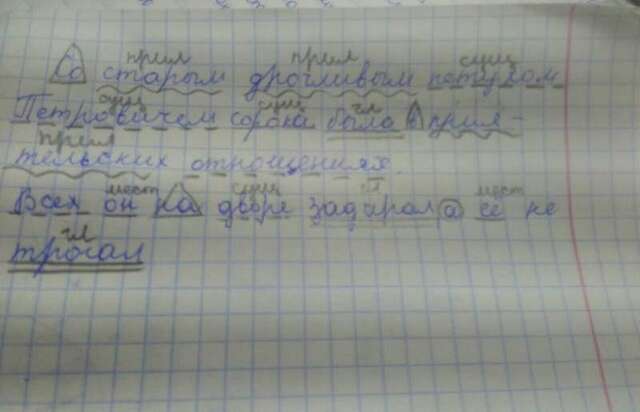 прил прил сущ
Со старым дрочливым петухом
сущ сущ гл
Петровичем сорока была в прия-
прил
тельских отношениях.
мест сущ гл мест
Всех он на дворе задирал а её не
гл
трогал